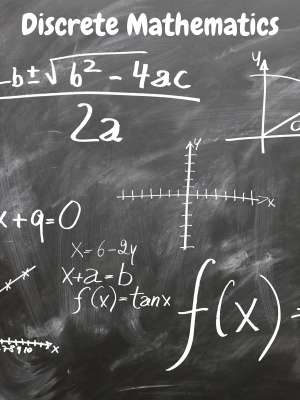 Discrete Mathematics
-b±√b²-4ac
2a
y
y
x
x+q=0
x=6-2y
x+a=b
f'(x)=tanx
f(x)=
x